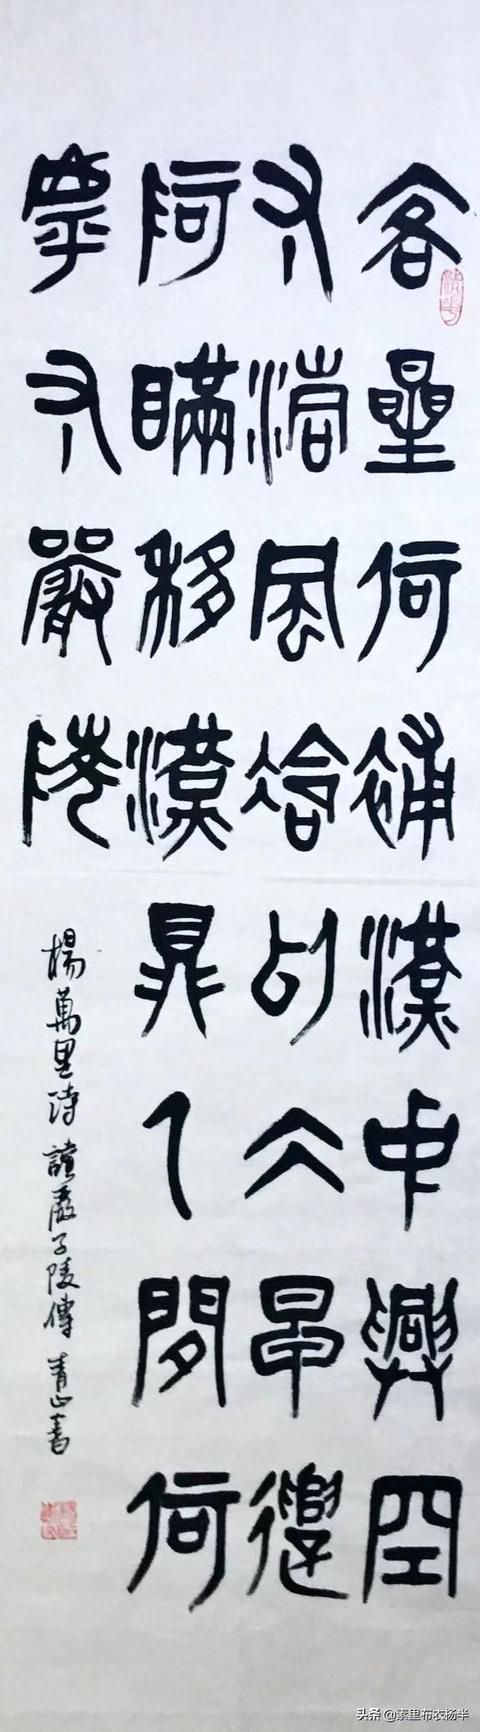 客星何補漢中興空
有清風冷似冰早遣
阿瞞移漢鼎人間何
處有嚴陵
楊萬里詩 讀嚴子陵傳 青山書
头条 @素里布衣杨半